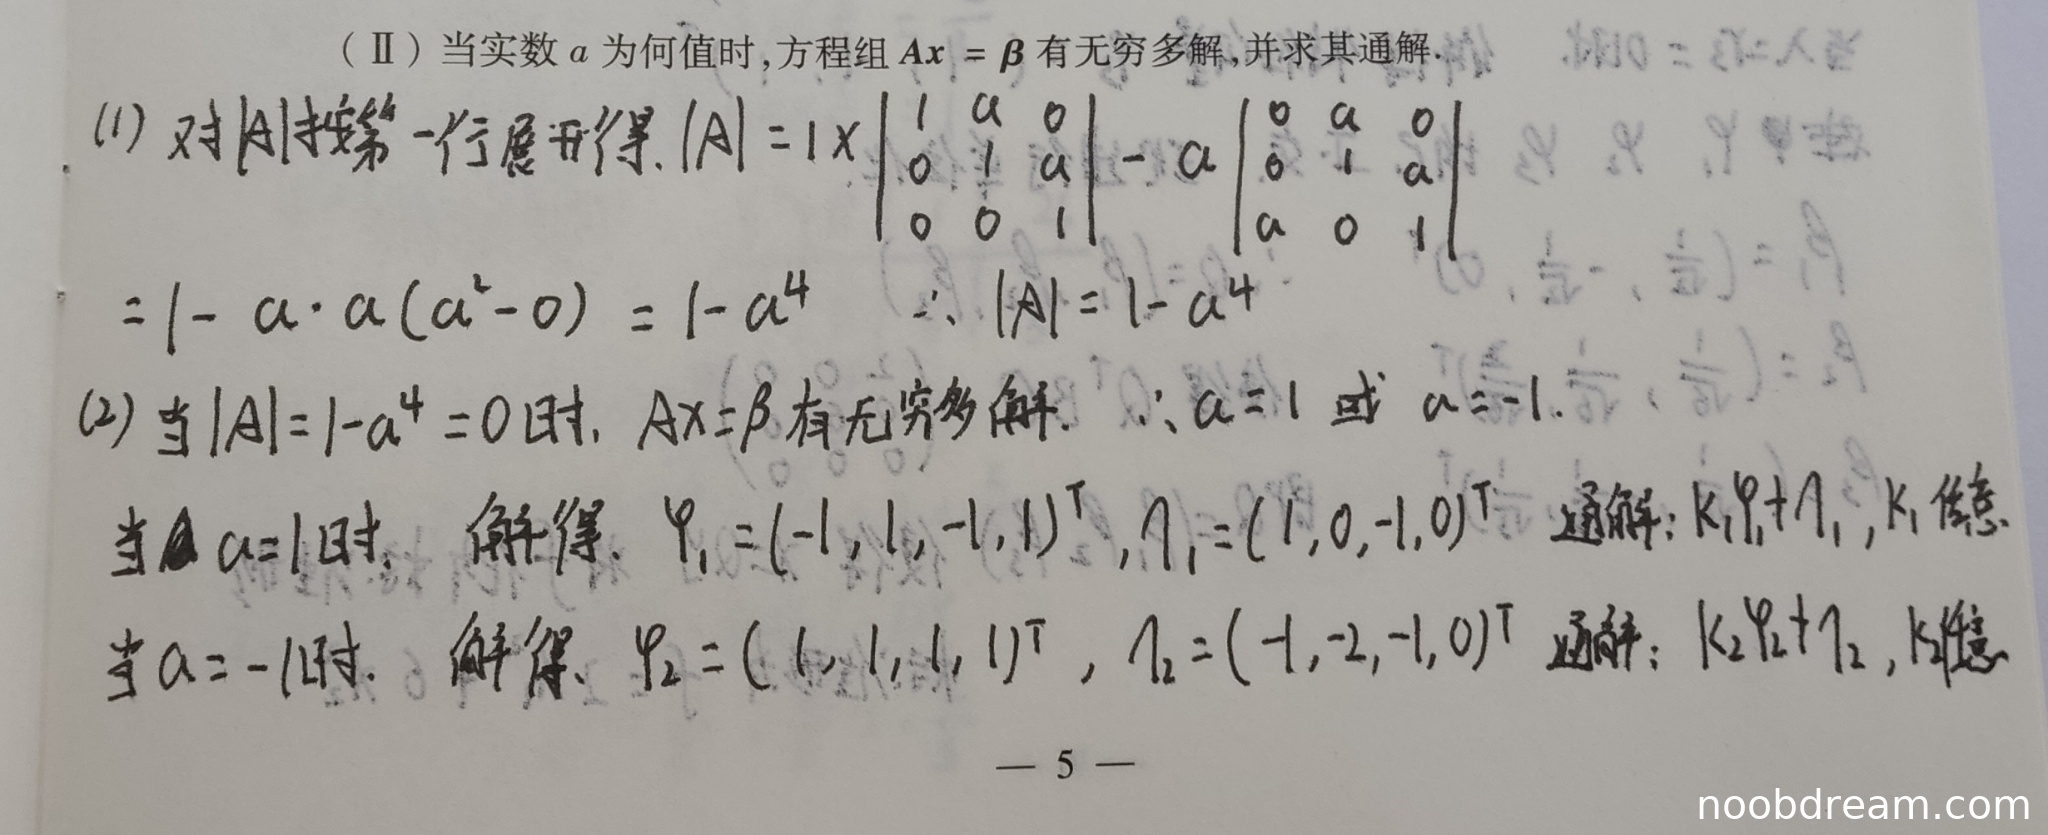 (Ⅱ)当实数 a 为何值时,方程组 Ax = β 有无穷多解,并求其通解.
(1) 对|A|按第一行展开得. |A| = 1× | 1 a 0 ; 0 1 a ; 0 0 1 | - a | 0 a 0 ; 0 1 a ; a 0 1 |
= 1 - a·a(a²-0) = 1-a⁴ ∴ |A| = 1-a⁴
(2) 当|A|=1-a⁴=0时, Ax=β有无穷多解. ∴ a=1 或 a=-1.
当 a=1时, 解得. φ₁=(-1,1,-1,1)ᵀ, η₁=(1,0,-1,0)ᵀ 通解: k₁φ₁+η₁, k₁任意.
当a=-1时. 解得. φ₂=(1,1,1,1)ᵀ, η₂=(-1,-2,-1,0)ᵀ 通解: k₂φ₂+η₂, k₂任意
— 5 —
noobdream.com